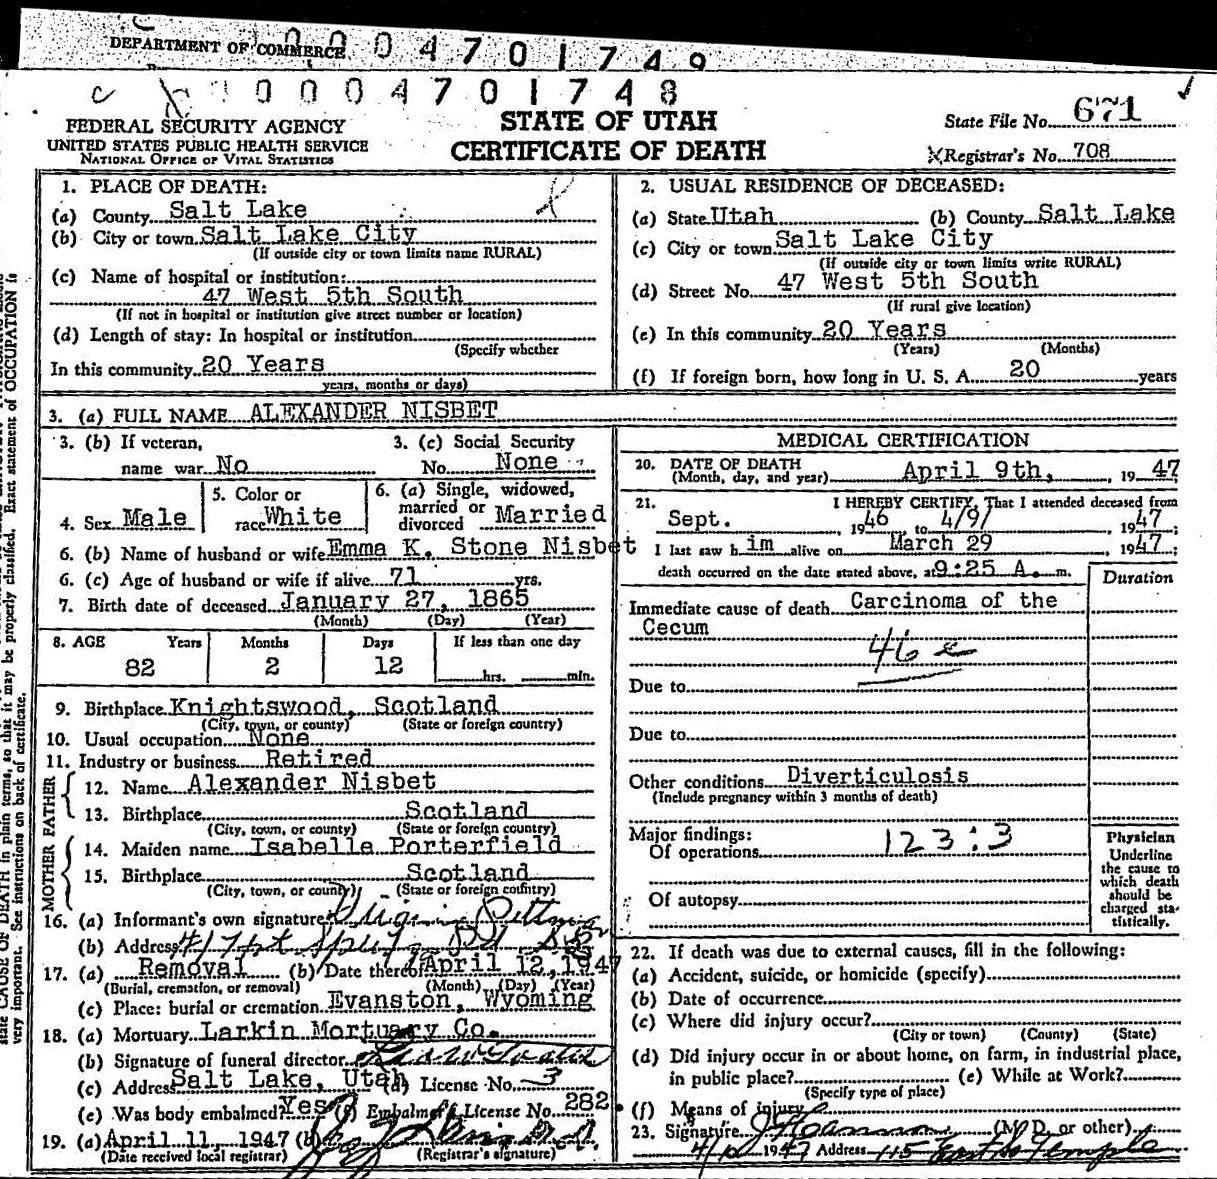 DEPARTMENT OF COMMERCE 0004701749
0004701748
FEDERAL SECURITY AGENCY
UNITED STATES PUBLIC HEALTH SERVICE
NATIONAL OFFICE OF VITAL STATISTICS
STATE OF UTAH
CERTIFICATE OF DEATH
State File No. 671
Registrar's No. 708
1. PLACE OF DEATH:
(a) County Salt Lake
(b) City or town Salt Lake City
(If outside city or town limits name RURAL)
(c) Name of hospital or institution:
47 West 5th South
(If not in hospital or institution give street number or location)
(d) Length of stay: In hospital or institution
(Specify whether
In this community 20 Years
years, months or days)
2. USUAL RESIDENCE OF DECEASED:
(a) State Utah (b) County Salt Lake
(c) City or town Salt Lake City
(If outside city or town limits write RURAL)
(d) Street No. 47 West 5th South
(If rural give location)
(e) In this community 20 Years
(Years) (Months)
(f) If foreign born, how long in U. S. A. 20 years
3. (a) FULL NAME ALEXANDER NISBET
3. (b) If veteran, 3. (c) Social Security
name war No No. None
4. Sex Male
5. Color or
race White
6. (a) Single, widowed,
married or
divorced Married
6. (b) Name of husband or wife Emma K. Stone Nisbet
6. (c) Age of husband or wife if alive 71 yrs.
7. Birth date of deceased January 27, 1865
(Month) (Day) (Year)
8. AGE Years Months Days If less than one day
82 2 12 hrs. min.
9. Birthplace Knightswood, Scotland
(City, town, or county) (State or foreign country)
10. Usual occupation None
11. Industry or business Retired
FATHER
12. Name Alexander Nisbet
13. Birthplace Scotland
(City, town, or county) (State or foreign country)
MOTHER
14. Maiden name Isabelle Porterfield
15. Birthplace Scotland
(City, town, or county) (State or foreign country)
16. (a) Informant's own signature
(b) Address
17. (a) Removal (b) Date thereof April 12, 1947
(Burial, cremation, or removal) (Month) (Day) (Year)
(c) Place: burial or cremation Evanston, Wyoming
18. (a) Mortuary Larkin Mortuary Co.
(b) Signature of funeral director
(c) Address Salt Lake, Utah (d) License No. 3
(e) Was body embalmed? Yes (f) Embalmer's License No. 282
19. (a) April 11, 1947 (b)
(Date received local registrar) (Registrar's signature)
MEDICAL CERTIFICATION
20. DATE OF DEATH
(Month, day, and year) April 9th, 1947
21. I HEREBY CERTIFY, That I attended deceased from
Sept. 1946 to 4/9/ 1947;
I last saw him alive on March 29, 1947;
death occurred on the date stated above, at 9:25 A. m.
Duration
Immediate cause of death Carcinoma of the
Cecum
46 e
Due to
Due to
Other conditions Diverticulosis
(Include pregnancy within 3 months of death)
Major findings:
Of operations 123:3
Of autopsy
Physician
Underline
the cause to
which death
should be
charged sta-
tistically.
22. If death was due to external causes, fill in the following:
(a) Accident, suicide, or homicide (specify)
(b) Date of occurrence
(c) Where did injury occur?
(City or town) (County) (State)
(d) Did injury occur in or about home, on farm, in industrial place,
in public place? (e) While at Work?
(Specify type of place)
(f) Means of injury
23. Signature (M. D. or other)
4/10 1947 Address 115 East So Temple
state CAUSE OF DEATH in plain terms, so that it may be properly classified. Exact statement of OCCUPATION is
very important. See instructions on back of certificate.